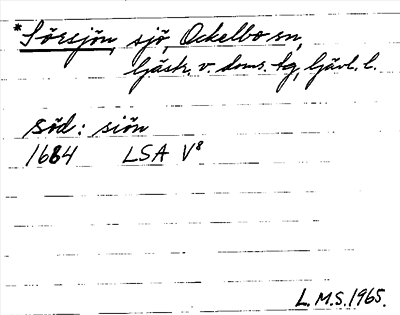 *Sörsjön, sjö, Ockelbo sn,
Gästr. v. doms. hg, Gävl. l.
söd: siön
1684 LSA V8
L.M.S. 1965.